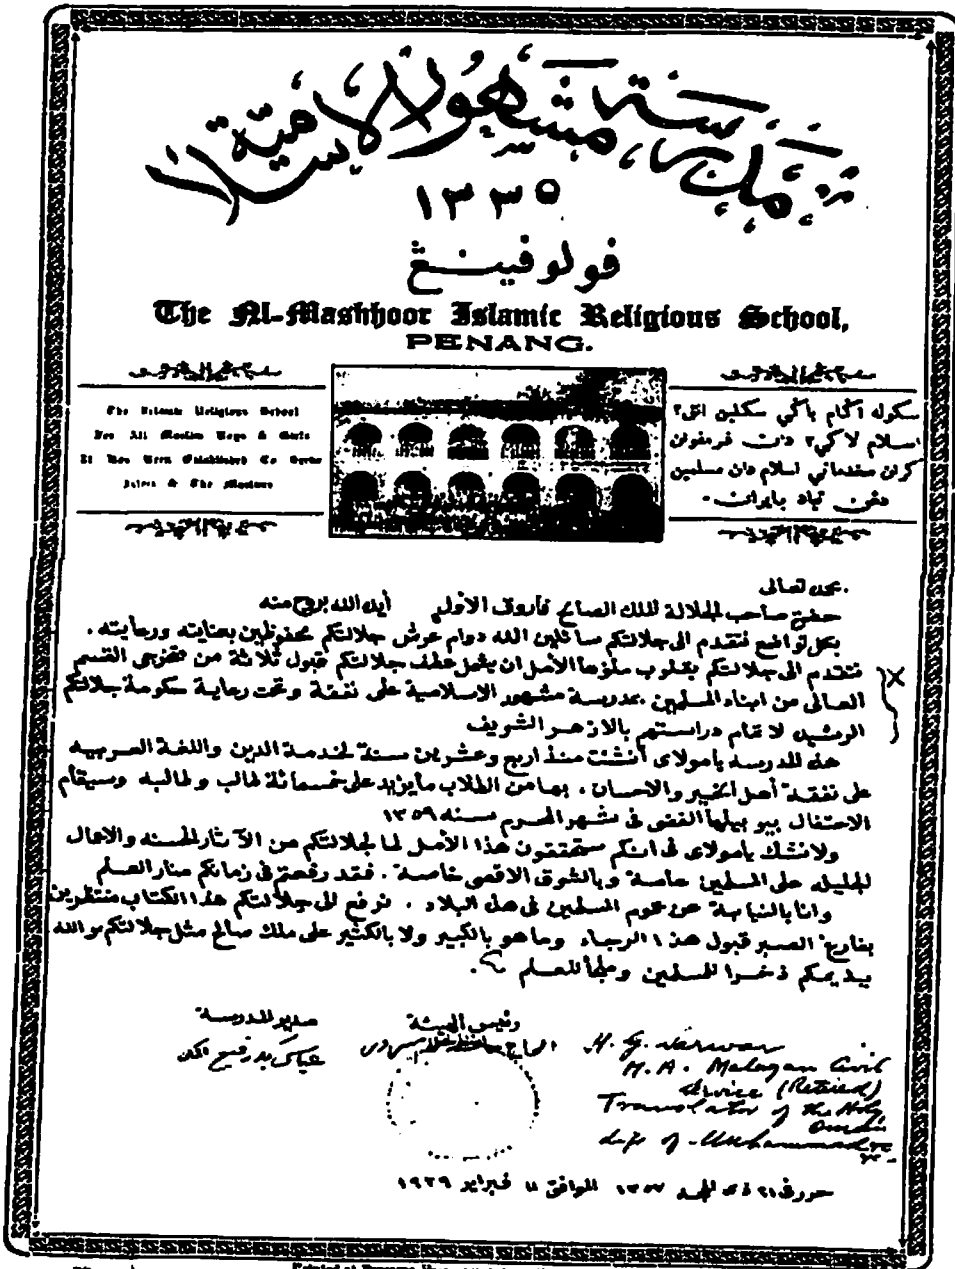 مدرسة مشهور الاسلامية
١٣٣٥
فولو فينڠ
The Al-Mashhoor Islamic Religious School,
PENANG.
The Islamic Religious School
For All Moslem Boys & Girls
It Has Been Established To Serve
Islam & The Moslems
سكوله اڬام باڬي سكلين انق٢
اسلام لاكي٢ دان فرمفوان
كران خدمتكن اسلام دان مسلمين
دڠن تياد بايران.
بحمد تعالى
حضرة صاحب الجلالة الملك الصالح فاروق الاول أيده الله بروح منه
بكل تواضع نتقدم الى جلالتكم سائلين الله دوام عرش جلالتكم محفوظين بعنايته ورعايته.
نتقدم الى جلالتكم بقلوب ملؤها الأمل ان يشمل عطف جلالتكم قبول ثلاثة من متخرجى القسم
العالى من ابناء المسلمين بمدرسة مشهور الاسلامية على نفقة وتحت رعاية حكومة جلالتكم
الرشيده لاتمام دراستهم بالازهر الشريف
هذه المدرسه يامولاى أنشئت منذ اربع وعشرين سنة لخدمة الدين واللغة العربيه
على نفقة أهل الخير والاحسان. بها من الطلاب مايزيد على خمسمائة طالب وطالبه وسيقام
الاحتفال بيوبيلها الفضى فى شهر المحرم سنه ١٣٥٩
ولانشك يامولاى فى انكم ستحققون هذا الأمل لما لجلالتكم من الآثار الحسنه والاعمال
الجليله على المسلمين عامة وبالشرق الاقصى خاصة. فقد رفعتم فى زمانكم منار العلم
وانا بالنيابة عن عموم المسلمين فى هذه البلاد. نرفع الى جلالتكم هذا الكتاب منتظرين
بفارغ الصبر قبول هذا الرجاء وما هو بالكبير ولا بالكثير على ملك صالح مثل جلالتكم والله
يديمكم ذخرا للمسلمين وملجأ للعلم
مدير المدرسة
رئيس الهيئة
الحاج
H. G. Sarwar
M.A. Malayan Civil
Service (Retired)
Translator of the Holy
Quran
Life of Muhammad etc
etc.
حرر فى ٢١ ذى الحجه ١٣٥٧ الموافق ١١ فبراير ١٩٣٩
Printed at